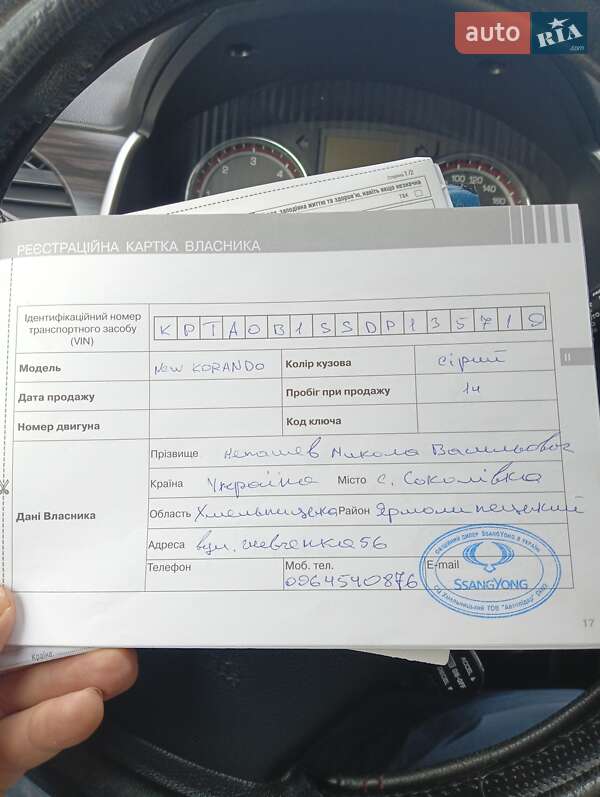 auto RIA.com
Сторінка 1/2
заподіяна життю та здоров'ю, навіть якщо незначна
ТАК
РЕЄСТРАЦІЙНА КАРТКА ВЛАСНИКА
Ідентифікаційний номер транспортного засобу (VIN) KPTA0B1SSDP135719
Модель New KORANDO Колір кузова сірий
Дата продажу Пробіг при продажу 14
Номер двигуна Код ключа
Дані Власника
Прізвище Микола Васильович
Країна Україна Місто с. Соколівка
Область Хмельницька Район Ярмолинецький
Адреса вул. Шевченка 56
Телефон Моб. тел. 0964540876 E-mail
ОФІЦІЙНИЙ ДИЛЕР SSANGYONG В УКРАЇНІ
SSANGYONG
м. Хмельницький ТОВ "Автолідер"
II
17
Країна